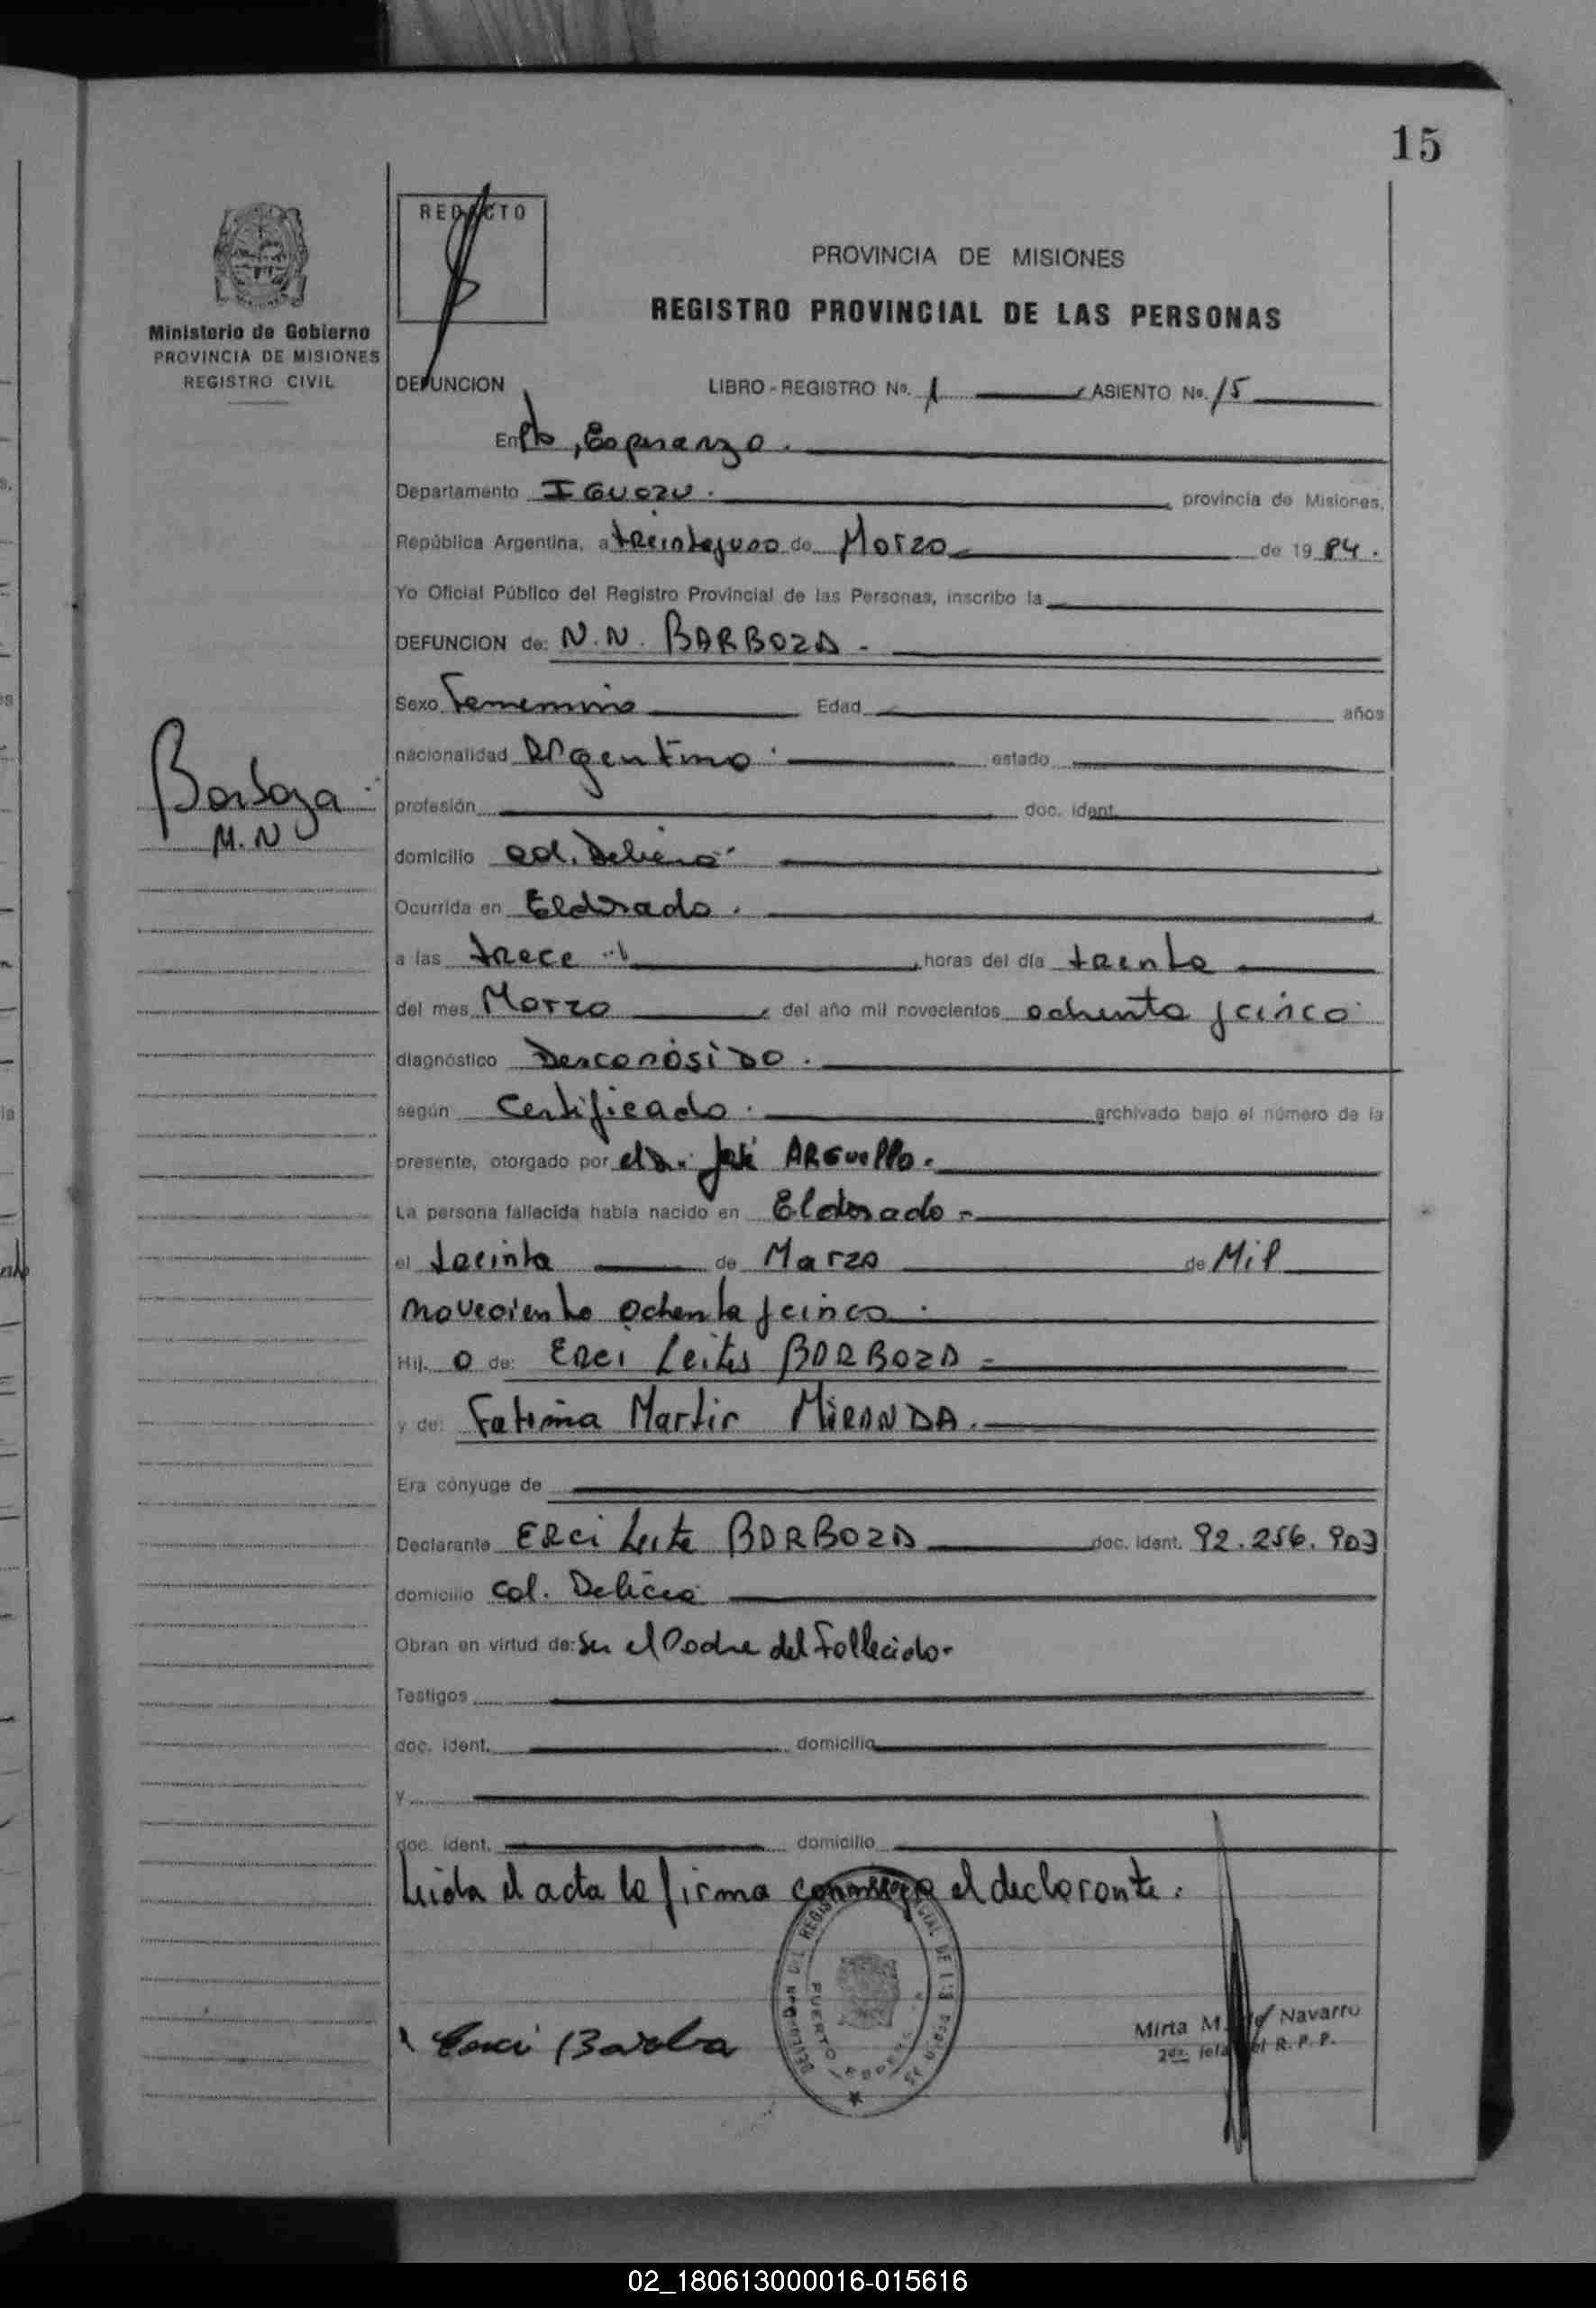 15
REDACTO
PROVINCIA DE MISIONES
REGISTRO PROVINCIAL DE LAS PERSONAS
Ministerio de Gobierno
PROVINCIA DE MISIONES
REGISTRO CIVIL
DEFUNCION LIBRO-REGISTRO No. 1 ASIENTO No. 15
En Pto, Esperanza.
Departamento IGUAZU. provincia de Misiones,
República Argentina, a treintayuno de Marzo de 19 84.
Yo Oficial Público del Registro Provincial de las Personas, inscribo la
DEFUNCION de: N.N. BARBOZA -
Sexo Femenino Edad años
nacionalidad Argentina. estado
Barboza
M.N
profesión doc. ident.
domicilio col. Delicia
Ocurrida en Eldorado.
a las trece horas del día treinta
del mes Marzo, del año mil novecientos ochenta y cinco
diagnóstico Desconosido.
según Certificado. archivado bajo el número de la
presente, otorgado por el Dr. José ARGUELLO.
La persona fallecida había nacido en Eldorado -
el treinta de Marzo de Mil
noveciento ochenta y cinco.
Hij. o de: ERCi Leites BARBOZA =
y de: Fatima Martir MIRANDA.
Era cónyuge de
Declarante ERCi Leite BARBOZA doc. ident. 92.256.903
domicilio col. Delicia
Obran en virtud de: Ser el Padre del Fallecido-
Testigos
doc. ident. domicilio
y
doc. ident. domicilio
Leida el acta la firma conmigo el declarante.
Erci Barboza
PUERTO
Mirta M. Navarro
R.P.P.
02_180613000016-015616